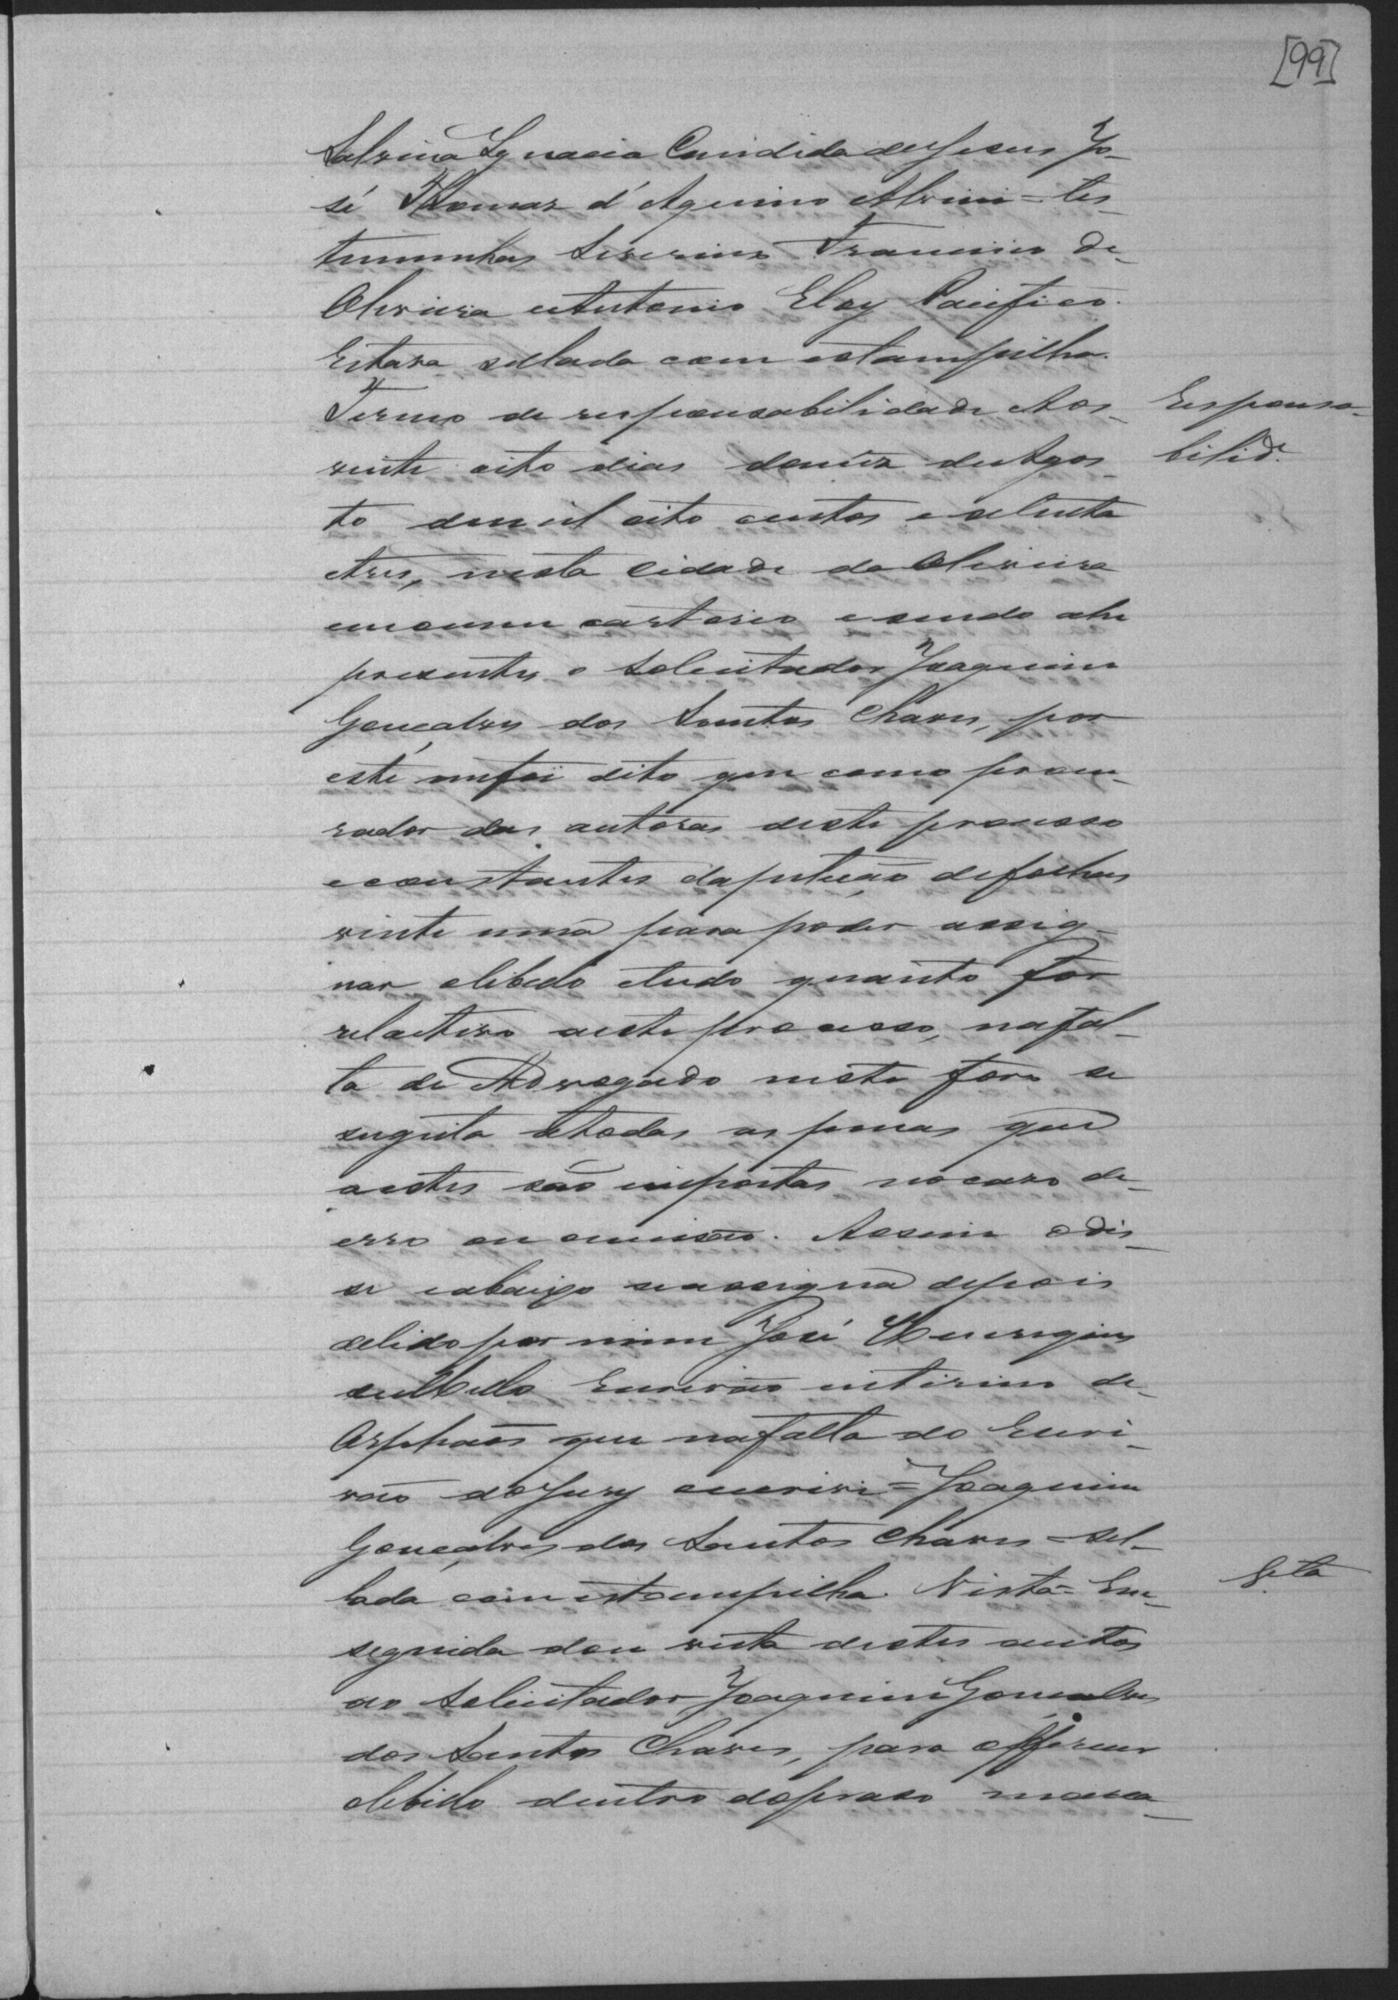 [99]
Salvina Ignacia Candida de Jesus Jo-
sé Thomaz d'Aquino Alvim = tes-
temunhas Severino Francisco de
Oliveira e Antonio Eloy Pacifico.
Estava sellada com estampilha.
Termo de responsabilidade Aos
Responsa-
vinte oito dias do mez de Agos-
bilide.
to de mil oito centos e setenta
e tres, nesta Cidade da Oliveira
em o meu cartorio e sendo ahi
presente o Solicitador Joaquim
Gonçalves dos Santos Chaves, por
este me foi dito que como procu-
rador das autoras deste processo
e constantes da petição de folhas
vinte uma para poder assig-
nar o libello e tudo quanto for
relactivo a este processo, na fal-
ta de Advogado neste foro se
sugeita a todas as penas que
a estes são impostas no caso de
erro ou omissão. Assim o dis-
se e abaixo se assigna depois
de lido por mim José
de Mello Escrivão interino de
Orphãos que na falta do Escri-
vão do Jury escrevi = Joaquim
Gonçalves dos Santos Chaves = sel-
lada com estampilha. Vista = Em
seguida dou vista destes autos
ao Solicitador Joaquim Gonçalves
dos Santos Chaves, para offerecer
o libello dentro do praso marca-